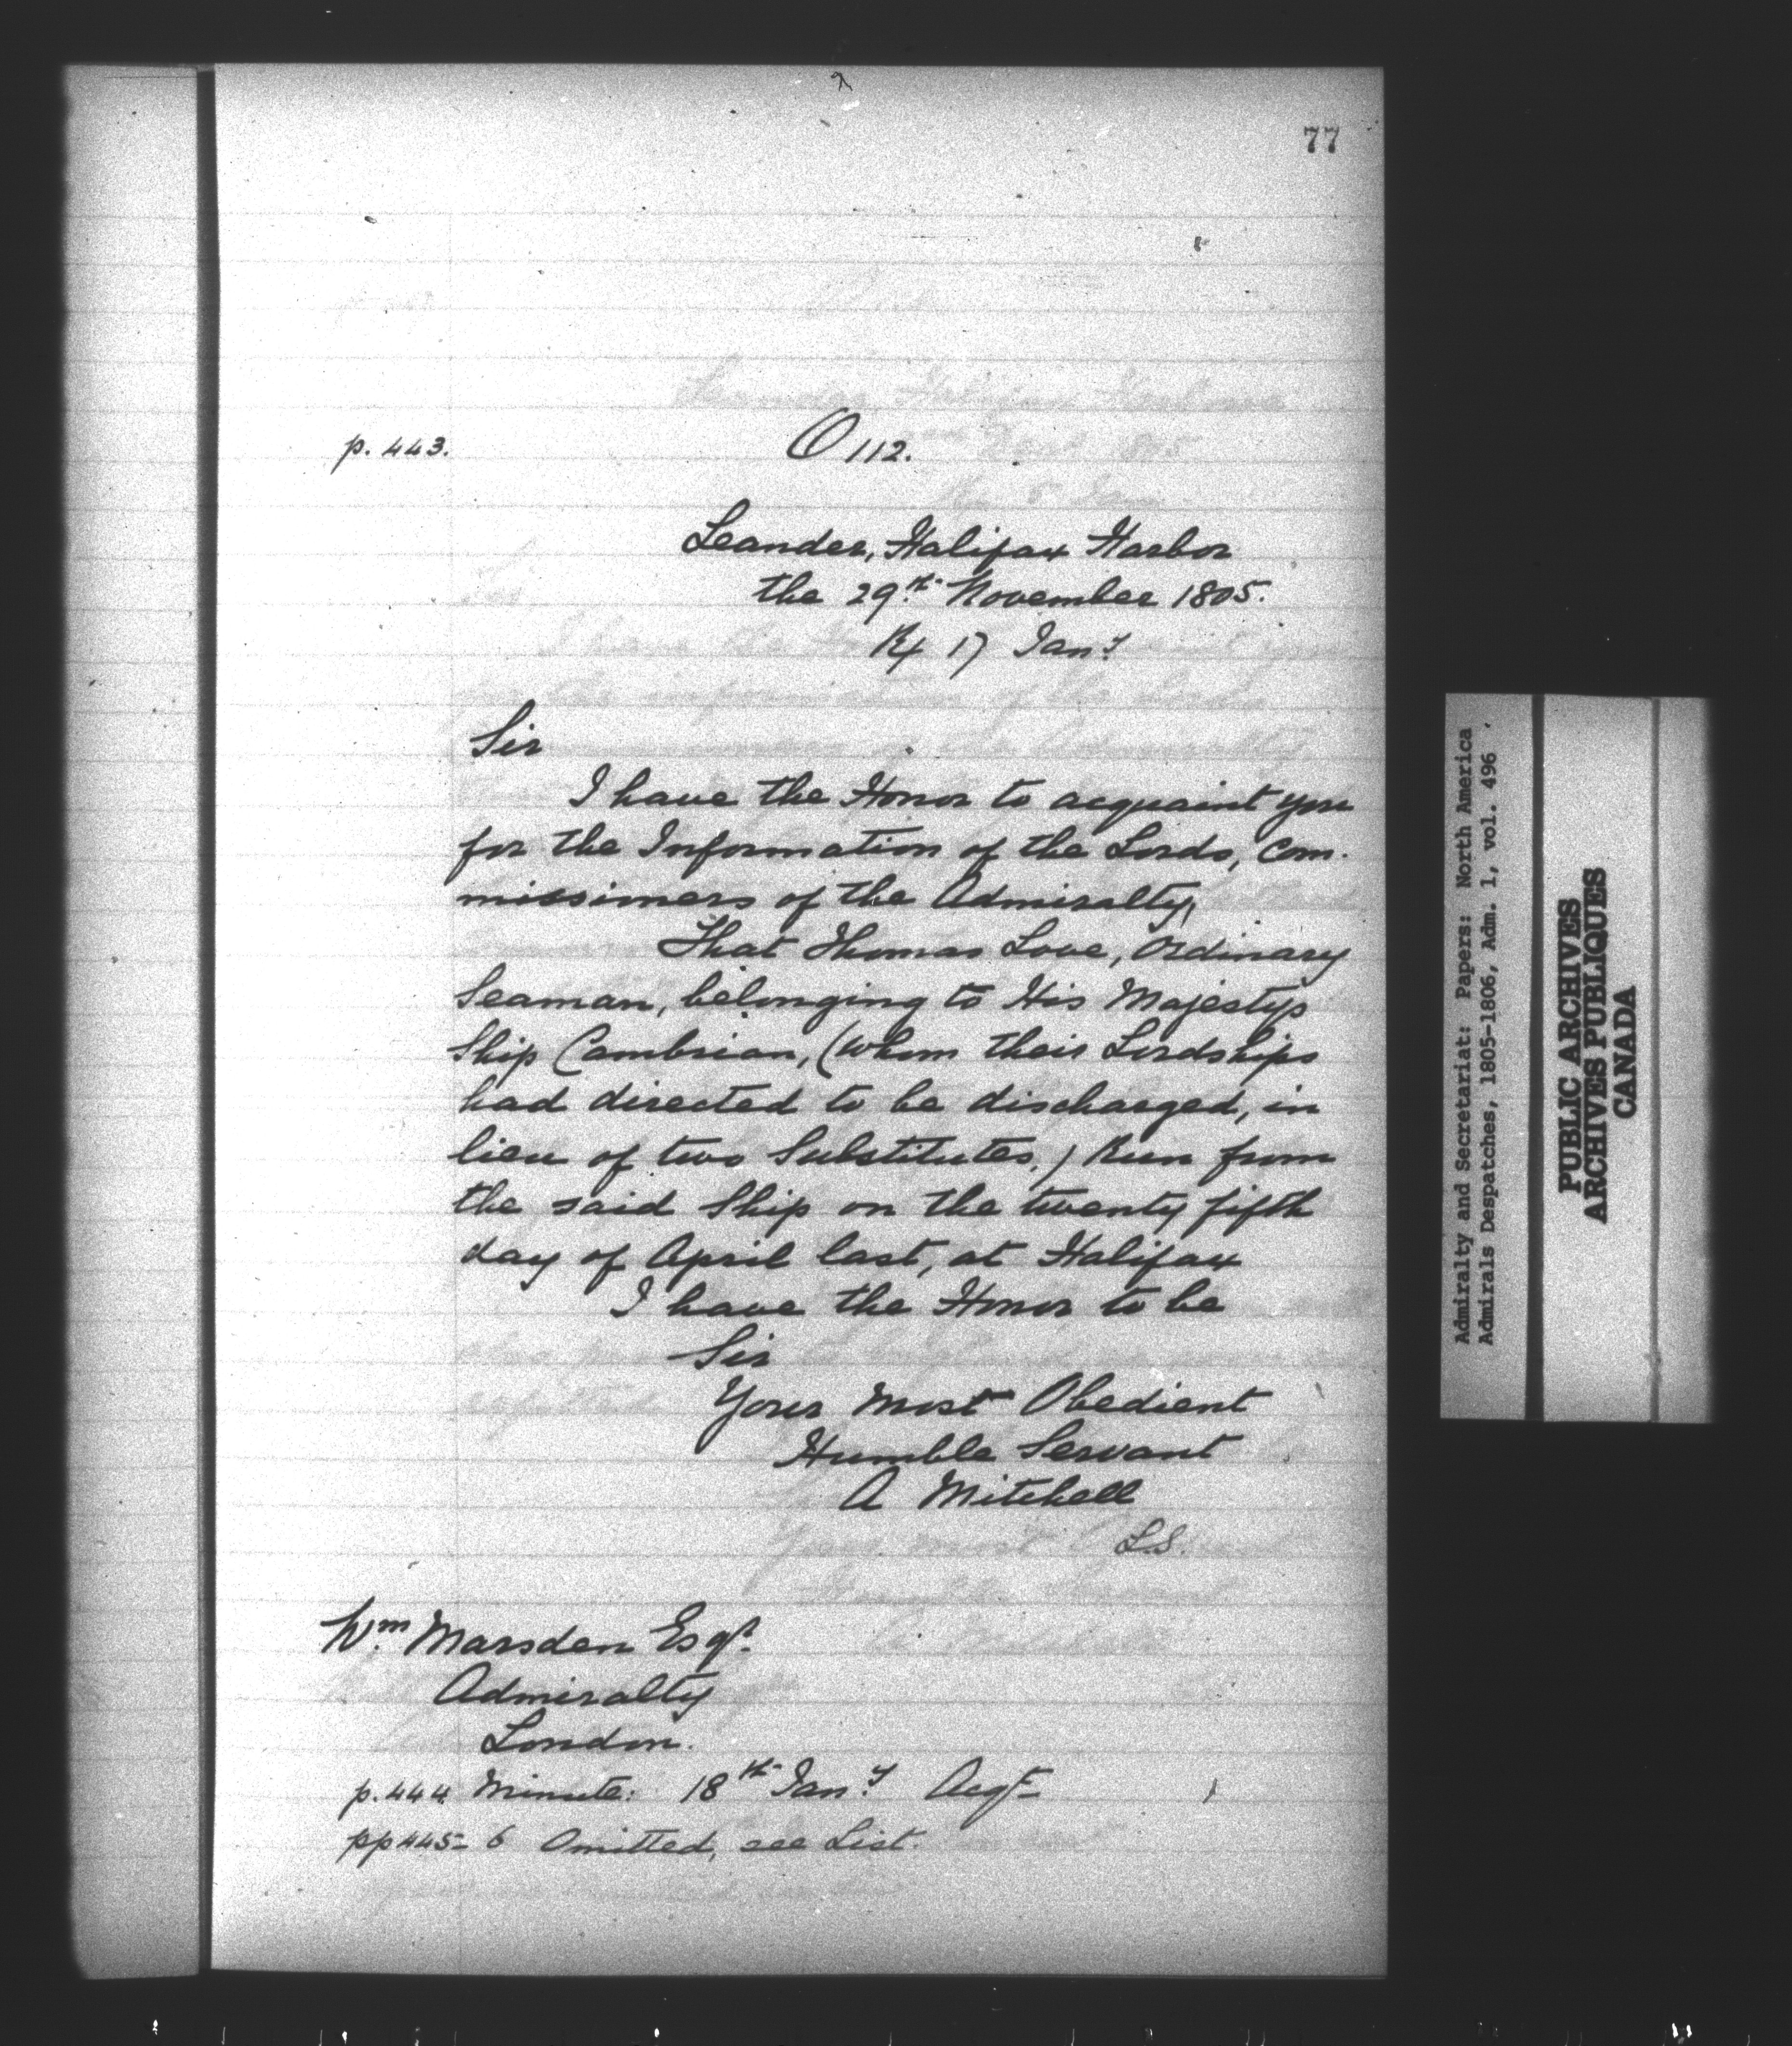 77
p. 443.
O 112.
Leander, Halifax Harbor
the 29th November 1805.
Rx 17 Jany
Sir
I have the Honor to acquaint you
for the Information of the Lords, Com-
missioners of the Admiralty,
That Thomas Love, Ordinary
Seaman, belonging to His Majestys
Ship Cambrian, (whom their Lordships
had directed to be discharged, in
lieu of two Substitutes,) Run from
the said Ship on the twenty fifth
day of April last, at Halifax
I have the Honor to be
Sir
Your most Obedient
Humble Servant
A Mitchell
L.S.
Wm Marsden Esqr.
Admiralty
London.
p. 444 Minute: 18th Jany Acqt
pp 445-6 Omitted, see List.
Admiralty and Secretariat: Papers: North America
Admirals Despatches, 1805-1806, Adm. 1, vol. 496
PUBLIC ARCHIVES
ARCHIVES PUBLIQUES
CANADA